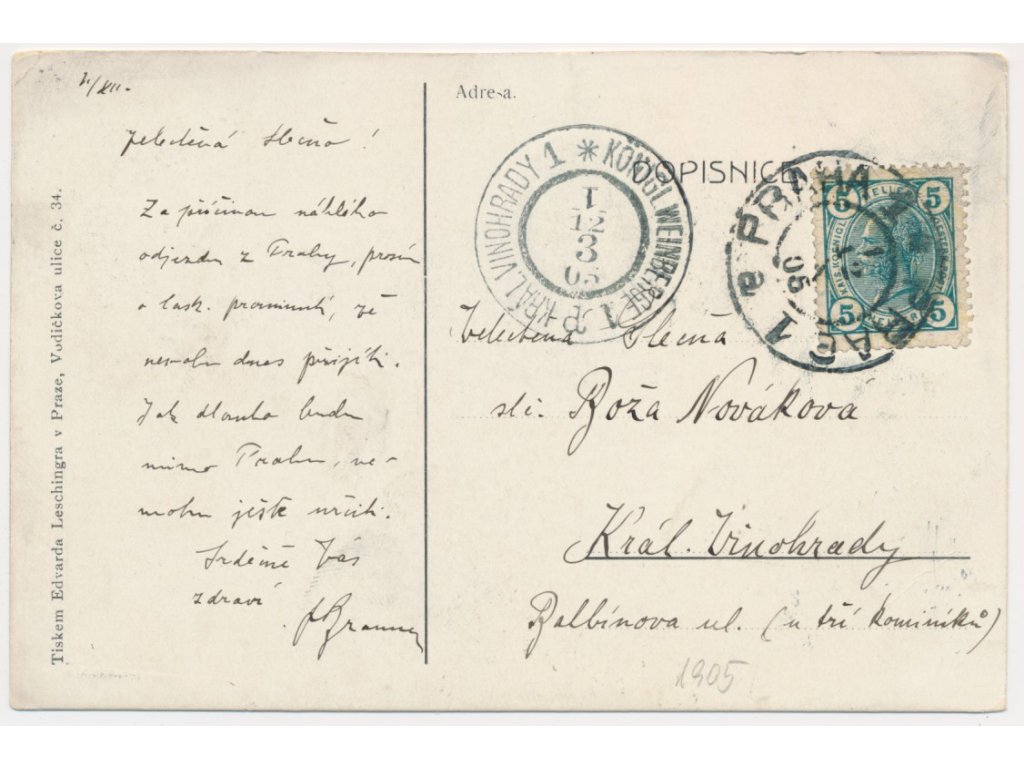 Tiskem Edvarda Leschingra v Praze, Vodičkova ulice č. 34.
Velectěná slečno!
Za příčinou náhlého
odjezdu z Prahy, prosím
o lask. prominutí, že
nemohu dnes přijíti.
Jak dlouho budu
mimo Prahu, ne-
mohu ještě určiti.
Srdečně Vás
zdraví
Adresa.
DOPISNICE
KÖNIGL. WEINBERGE 1
KRÁL. VINOHRADY 1
12
3
05
PRAHA 1
PRAG 1
05
5 5
5 5
Velectěná Slečna
slč. Boža Nováková
Král. Vinohrady
Balbínova ul. (u tří kominíků)
1905